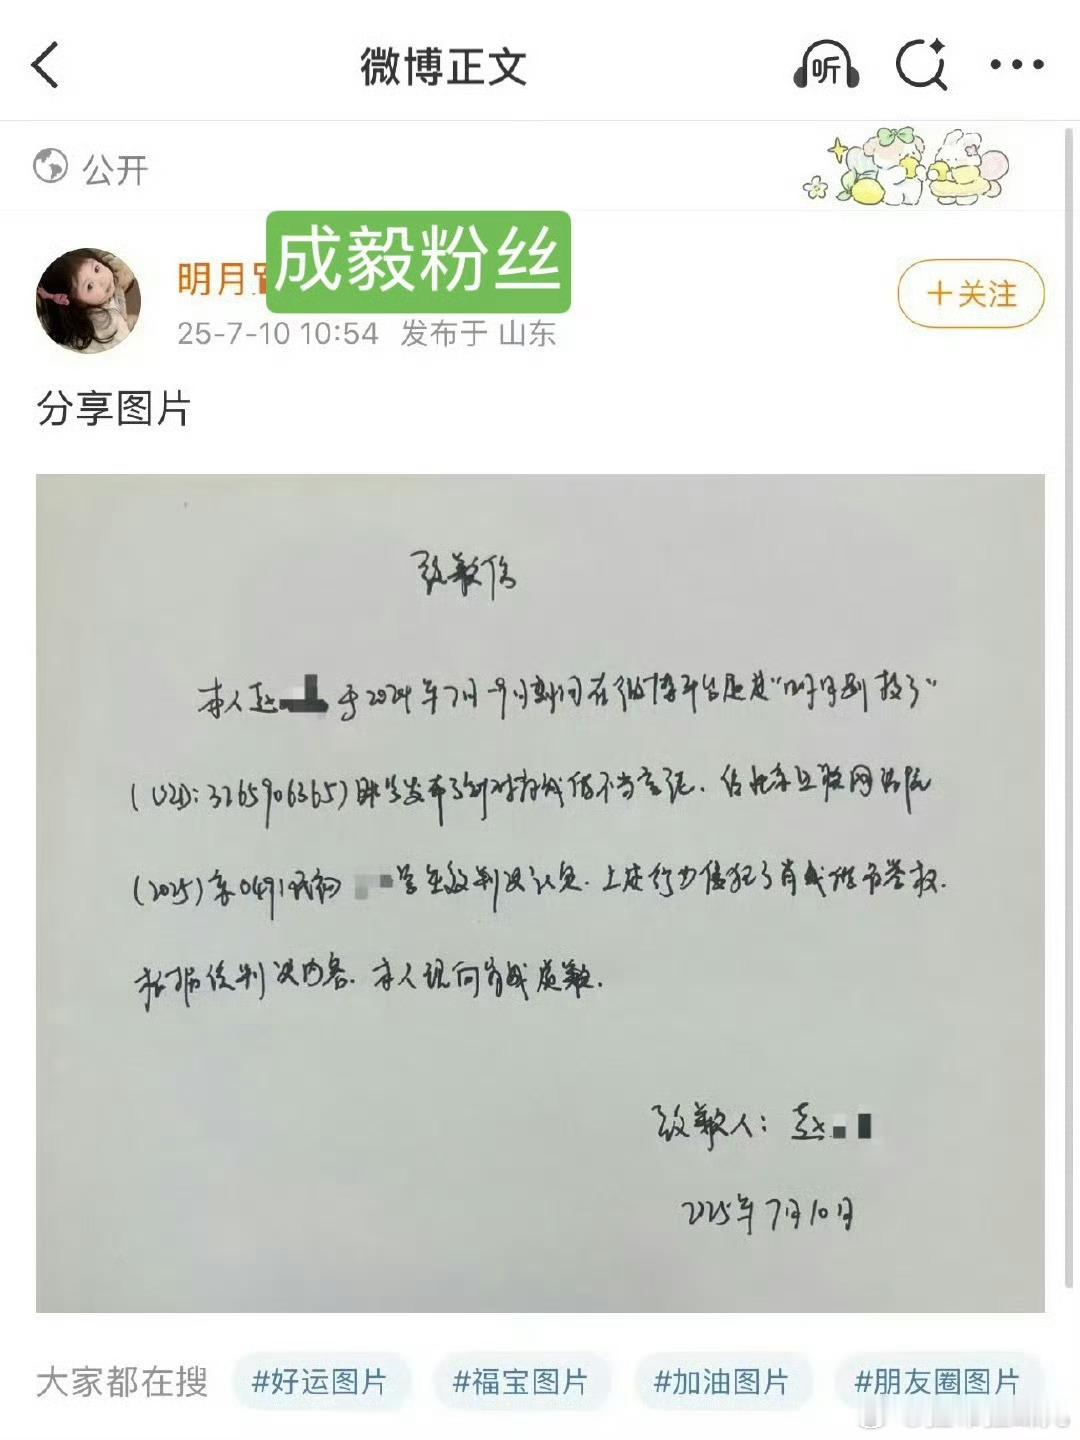 微博正文
听
公开
明月
成毅粉丝
+关注
25-7-10 10:54 发布于 山东
分享图片
致歉信
本人赵 于2024年7月-9月期间在微博平台通过"明月别枝了"
(UID:3265906365)账号发布了针对肖战的不当言论.经北京互联网法院
(2025)京0491民初 号生效判决认定.上述行为侵犯了肖战的名誉权.
根据判决内容.本人现向肖战致歉.
致歉人:赵
2025年7月10日
大家都在搜 #好运图片 #福宝图片 #加油图片 #朋友圈图片